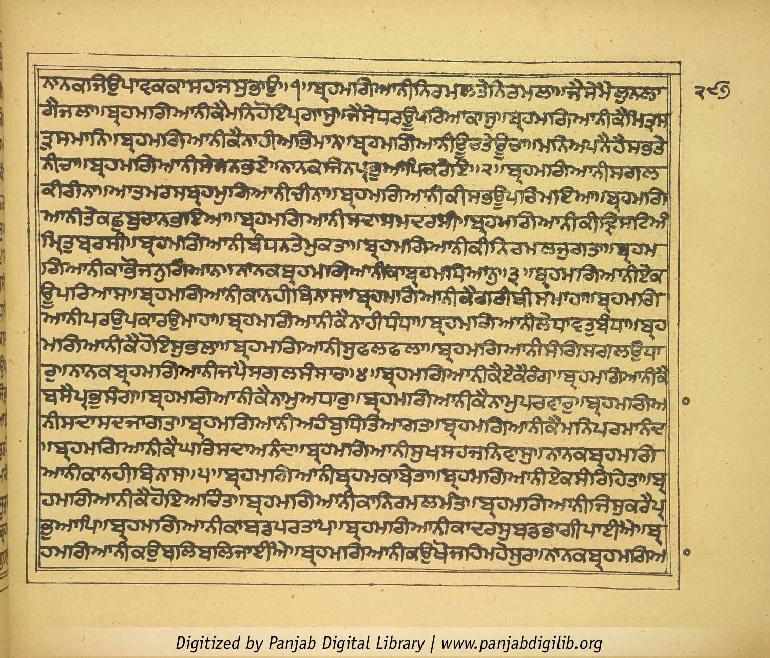 ਨਾਨਕਜਿਉਪਾਵਕਕਾਸਹਜਸੁਭਾਉ॥੧॥ਬ੍ਰਹਮਗਿਆਨੀਨਿਰਮਲਤੇਨਿਰਮਲਾ॥ਜੈਸੇਮੈਲੁਨਲਾ
ਗੈਜਲਾ॥ਬ੍ਰਹਮਗਿਆਨੀਕੈਮਨਿਹੋਇਪ੍ਰਗਾਸੁ॥ਜੈਸੇਧਰਊਪਰਿਆਕਾਸੁ॥ਬ੍ਰਹਮਗਿਆਨੀਕੈਮਿਤ੍ਰਸ
ਤ੍ਰੁਸਮਾਨਿ॥ਬ੍ਰਹਮਗਿਆਨੀਕੈਨਾਹੀਅਭਿਮਾਨ॥ਬ੍ਰਹਮਗਿਆਨੀਊਚਤੇਊਚਾ॥ਮਨਿਅਪਨੈਹੈਸਭਤੇ
ਨੀਚਾ॥ਬ੍ਰਹਮਗਿਆਨੀਸੇਜਨਭਏ॥ਨਾਨਕਜਿਨਪ੍ਰਭੁਆਪਿਕਰੇਇ॥੨॥ਬ੍ਰਹਮਗਿਆਨੀਸਗਲ
ਕੀਰੀਨਾ॥ਆਤਮਰਸਬ੍ਰਹਮਗਿਆਨੀਚੀਨਾ॥ਬ੍ਰਹਮਗਿਆਨੀਕੀਸਭਊਪਰਿਮਇਆ॥ਬ੍ਰਹਮਗਿ
ਆਨੀਤੇਕਛੁਬੁਰਾਨਭਇਆ॥ਬ੍ਰਹਮਗਿਆਨੀਸਦਾਸਮਦਰਸੀ॥ਬ੍ਰਹਮਗਿਆਨੀਕੀਦ੍ਰਿਸਟਿਅੰ
ਮ੍ਰਿਤੁਬਰਸੀ॥ਬ੍ਰਹਮਗਿਆਨੀਬੰਧਨਤੇਮੁਕਤਾ॥ਬ੍ਰਹਮਗਿਆਨੀਕੀਨਿਰਮਲਜੁਗਤਾ॥ਬ੍ਰਹਮ
ਗਿਆਨੀਕਾਭੋਜਨੁਗਿਆਨ॥ਨਾਨਕਬ੍ਰਹਮਗਿਆਨੀਕਾਬ੍ਰਹਮਧਿਆਨੁ॥੩॥ਬ੍ਰਹਮਗਿਆਨੀਏਕ
ਊਪਰਿਆਸ॥ਬ੍ਰਹਮਗਿਆਨੀਕਾਨਹੀਬਿਨਾਸ॥ਬ੍ਰਹਮਗਿਆਨੀਕੈਗਰੀਬੀਸਮਾਹਾ॥ਬ੍ਰਹਮਗਿ
ਆਨੀਪਰਉਪਕਾਰਉਮਾਹਾ॥ਬ੍ਰਹਮਗਿਆਨੀਕੈਨਾਹੀਧੰਧਾ॥ਬ੍ਰਹਮਗਿਆਨੀਲੇਧਾਵਤੁਬੰਧਾ॥ਬ੍ਰਹ
ਮਗਿਆਨੀਕੈਹੋਇਸੁਭਲਾ॥ਬ੍ਰਹਮਗਿਆਨੀਸੁਫਲਫਲਾ॥ਬ੍ਰਹਮਗਿਆਨੀਸੰਗਿਸਗਲਉਧਾ
ਰੁ॥ਨਾਨਕਬ੍ਰਹਮਗਿਆਨੀਜਪੈਸਗਲਸੰਸਾਰੁ॥੪॥ਬ੍ਰਹਮਗਿਆਨੀਕੈਏਕੈਰੰਗ॥ਬ੍ਰਹਮਗਿਆਨੀਕੈ
ਬਸੈਪ੍ਰਭੁਸੰਗ॥ਬ੍ਰਹਮਗਿਆਨੀਕੈਨਾਮੁਅਧਾਰੁ॥ਬ੍ਰਹਮਗਿਆਨੀਕੈਨਾਮੁਪਰਵਾਰੁ॥ਬ੍ਰਹਮਗਿਆ
ਨੀਸਦਾਸਦਜਾਗਤਾ॥ਬ੍ਰਹਮਗਿਆਨੀਅਹੰਬੁਧਿਤਿਆਗਤਾ॥ਬ੍ਰਹਮਗਿਆਨੀਕੈਮਨਿਪਰਮਾਨੰਦ
॥ਬ੍ਰਹਮਗਿਆਨੀਕੈਘਰਿਸਦਾਅਨੰਦ॥ਬ੍ਰਹਮਗਿਆਨੀਸੁਖਸਹਜਨਿਵਾਸੁ॥ਨਾਨਕਬ੍ਰਹਮਗਿ
ਆਨੀਕਾਨਹੀਬਿਨਾਸ॥੫॥ਬ੍ਰਹਮਗਿਆਨੀਬ੍ਰਹਮਕਾਬੇਤਾ॥ਬ੍ਰਹਮਗਿਆਨੀਏਕਸੰਗਿਹੇਤਾ॥ਬ੍ਰ
ਹਮਗਿਆਨੀਕੈਹੋਇਅਚਿੰਤ॥ਬ੍ਰਹਮਗਿਆਨੀਕਾਨਿਰਮਲਮੰਤ॥ਬ੍ਰਹਮਗਿਆਨੀਜਿਸੁਕਰੈਪ੍ਰ
ਭੁਆਪਿ॥ਬ੍ਰਹਮਗਿਆਨੀਕਾਬਡਪਰਤਾਪ॥ਬ੍ਰਹਮਗਿਆਨੀਕਾਦਰਸੁਬਡਭਾਗੀਪਾਈਐ॥ਬ੍ਰ
ਹਮਗਿਆਨੀਕਉਬਲਿਬਲਿਜਾਈਐ॥ਬ੍ਰਹਮਗਿਆਨੀਕਉਖੋਜਹਿਮਹੇਸੁਰ॥ਨਾਨਕਬ੍ਰਹਮਗਿਆ
Digitized by Panjab Digital Library | www.panjabdigilib.org